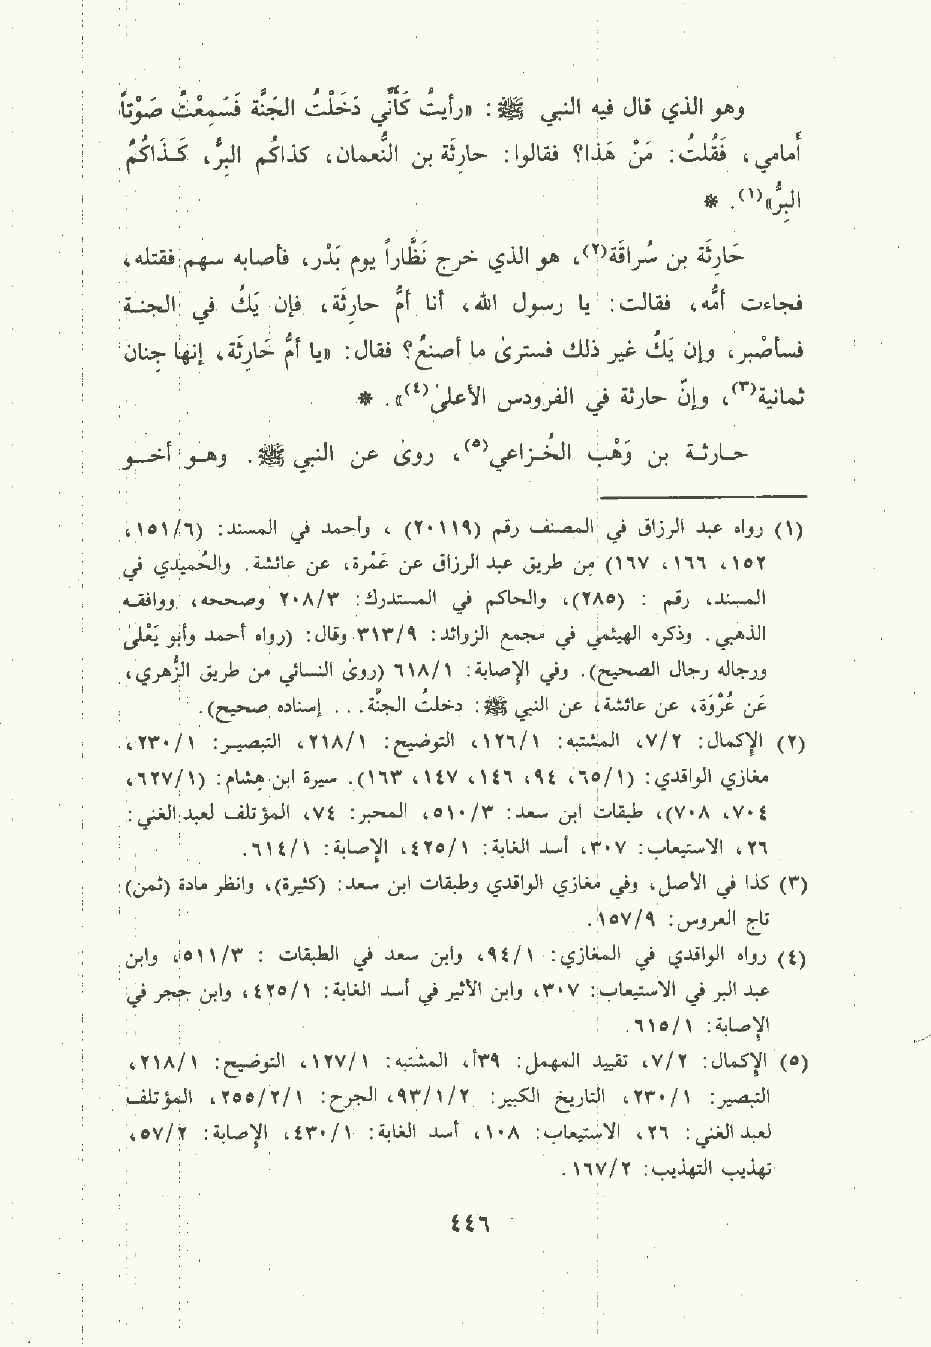 وهو الذي قال فيه النبي ﷺ: «رأيتُ كَأَنِّي دَخَلْتُ الجَنَّة فَسَمِعْتُ صَوْتاً
أمامي، فَقُلتُ: مَنْ هَذا؟ فقالوا: حارِثَة بن النُّعمان، كذاكم البِرُّ، كَـذاكُمُ
البِرُّ»(١). *
حَارِثَة بن سُراقَة(٢)، هو الذي خرج نَظَّاراً يوم بَدْر، فأصابه سهم فقتله،
فجاءت أمُّه، فقالت: يا رسول الله، أنا أمُّ حارِثَة، فإن يَكُ في الجنـة
فسأصْبر، وإن يَكُ غير ذلك فسترى ما أصنعُ؟ فقال: «يا أمَّ حَارِثَة، إنها جِنان
ثمانية(٣)، وإنّ حارثة في الفردوس الأعلىٰ(٤)». *
حـارثـة بن وَهْب الخُـزاعي(٥)، روى عن النبي ﷺ. وهـو أخـو
(١) رواه عبد الرزاق في المصنف رقم (٢٠١١٩) ، وأحمد في المسند: (٦/١٥١،
١٥٢، ١٦٦، ١٦٧) مِن طريق عبد الرزاق عن عَمْرة، عن عائشة. والحُميدي في
المسند، رقم : (٢٨٥)، والحاكم في المستدرك: ٣/٢٠٨ وصححه، ووافقـه
الذهبي. وذكره الهيثمي في مجمع الزوائد: ٩/٣١٣ وقال: (رواه أحمد وأبو يَعْلىٰ
ورجاله رجال الصحيح). وفي الإصابة: ١/٦١٨ (روىٰ النسائي من طريق الزُّهري،
عَن عُرْوَة، عن عائشة، عن النبي ﷺ: دخلتُ الجنَّة... إسناده صحيح).
(٢) الإكمال: ٢/٧، المشتبه: ١/١٢٦، التوضيح: ١/٢١٨، التبصيـر: ١/٢٣٠،
مغازي الواقدي: (١/٦٥، ٩٤، ١٤٦، ١٤٧، ١٦٣). سيرة ابن هِشام: (١/٦٢٧،
٧٠٤، ٧٠٨)، طبقات ابن سعد: ٣/٥١٠، المحبر: ٧٤، المؤتلف لعبد الغني:
٢٦، الاستيعاب: ٣٠٧، أسد الغابة: ١/٤٢٥، الإصابة: ١/٦١٤.
(٣) كذا في الأصل، وفي مغازي الواقدي وطبقات ابن سعد: (كثيرة)، وانظر مادة (ثمن):
تاج العروس: ٩/١٥٧.
(٤) رواه الواقدي في المغازي: ١/٩٤، وابن سعد في الطبقات : ٣/٥١١، وابن
عبد البر في الاستيعاب: ٣٠٧، وابن الأثير في أسد الغابة: ١/٤٢٥، وابن حجر في
الإصابة: ١/٦١٥.
(٥) الإكمال: ٢/٧، تقييد المهمل: ٣٩أ، المشتبه: ١/١٢٧، التوضيح: ١/٢١٨،
التبصير: ١/٢٣٠، التاريخ الكبير: ٢/١/٩٣، الجرح: ١/٢/٢٥٥، المؤتلف
لعبد الغني: ٢٦، الاستيعاب: ١٠٨، أسد الغابة: ١/٤٣٠، الإصابة: ٢/٥٧،
تهذيب التهذيب: ٢/١٦٧.
٤٤٦